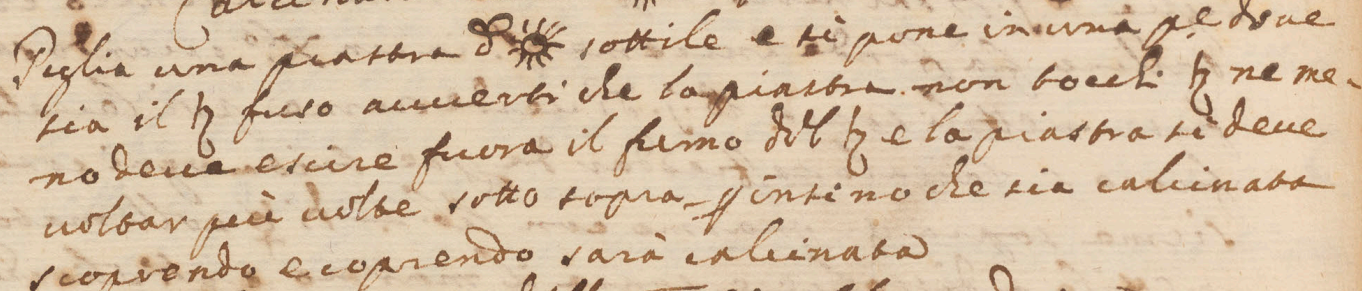 Piglia una piastra d ☉ sottile e si pone in una pe dove
sia il ♄ fuso avverti che la piastra non tocchi ♄ ne me-
no deve escire fuora il fumo del ♄ e la piastra si deve
voltar più volte sotto sopra insino che sia calcinata
scoprendo e coprendo sarà calcinata